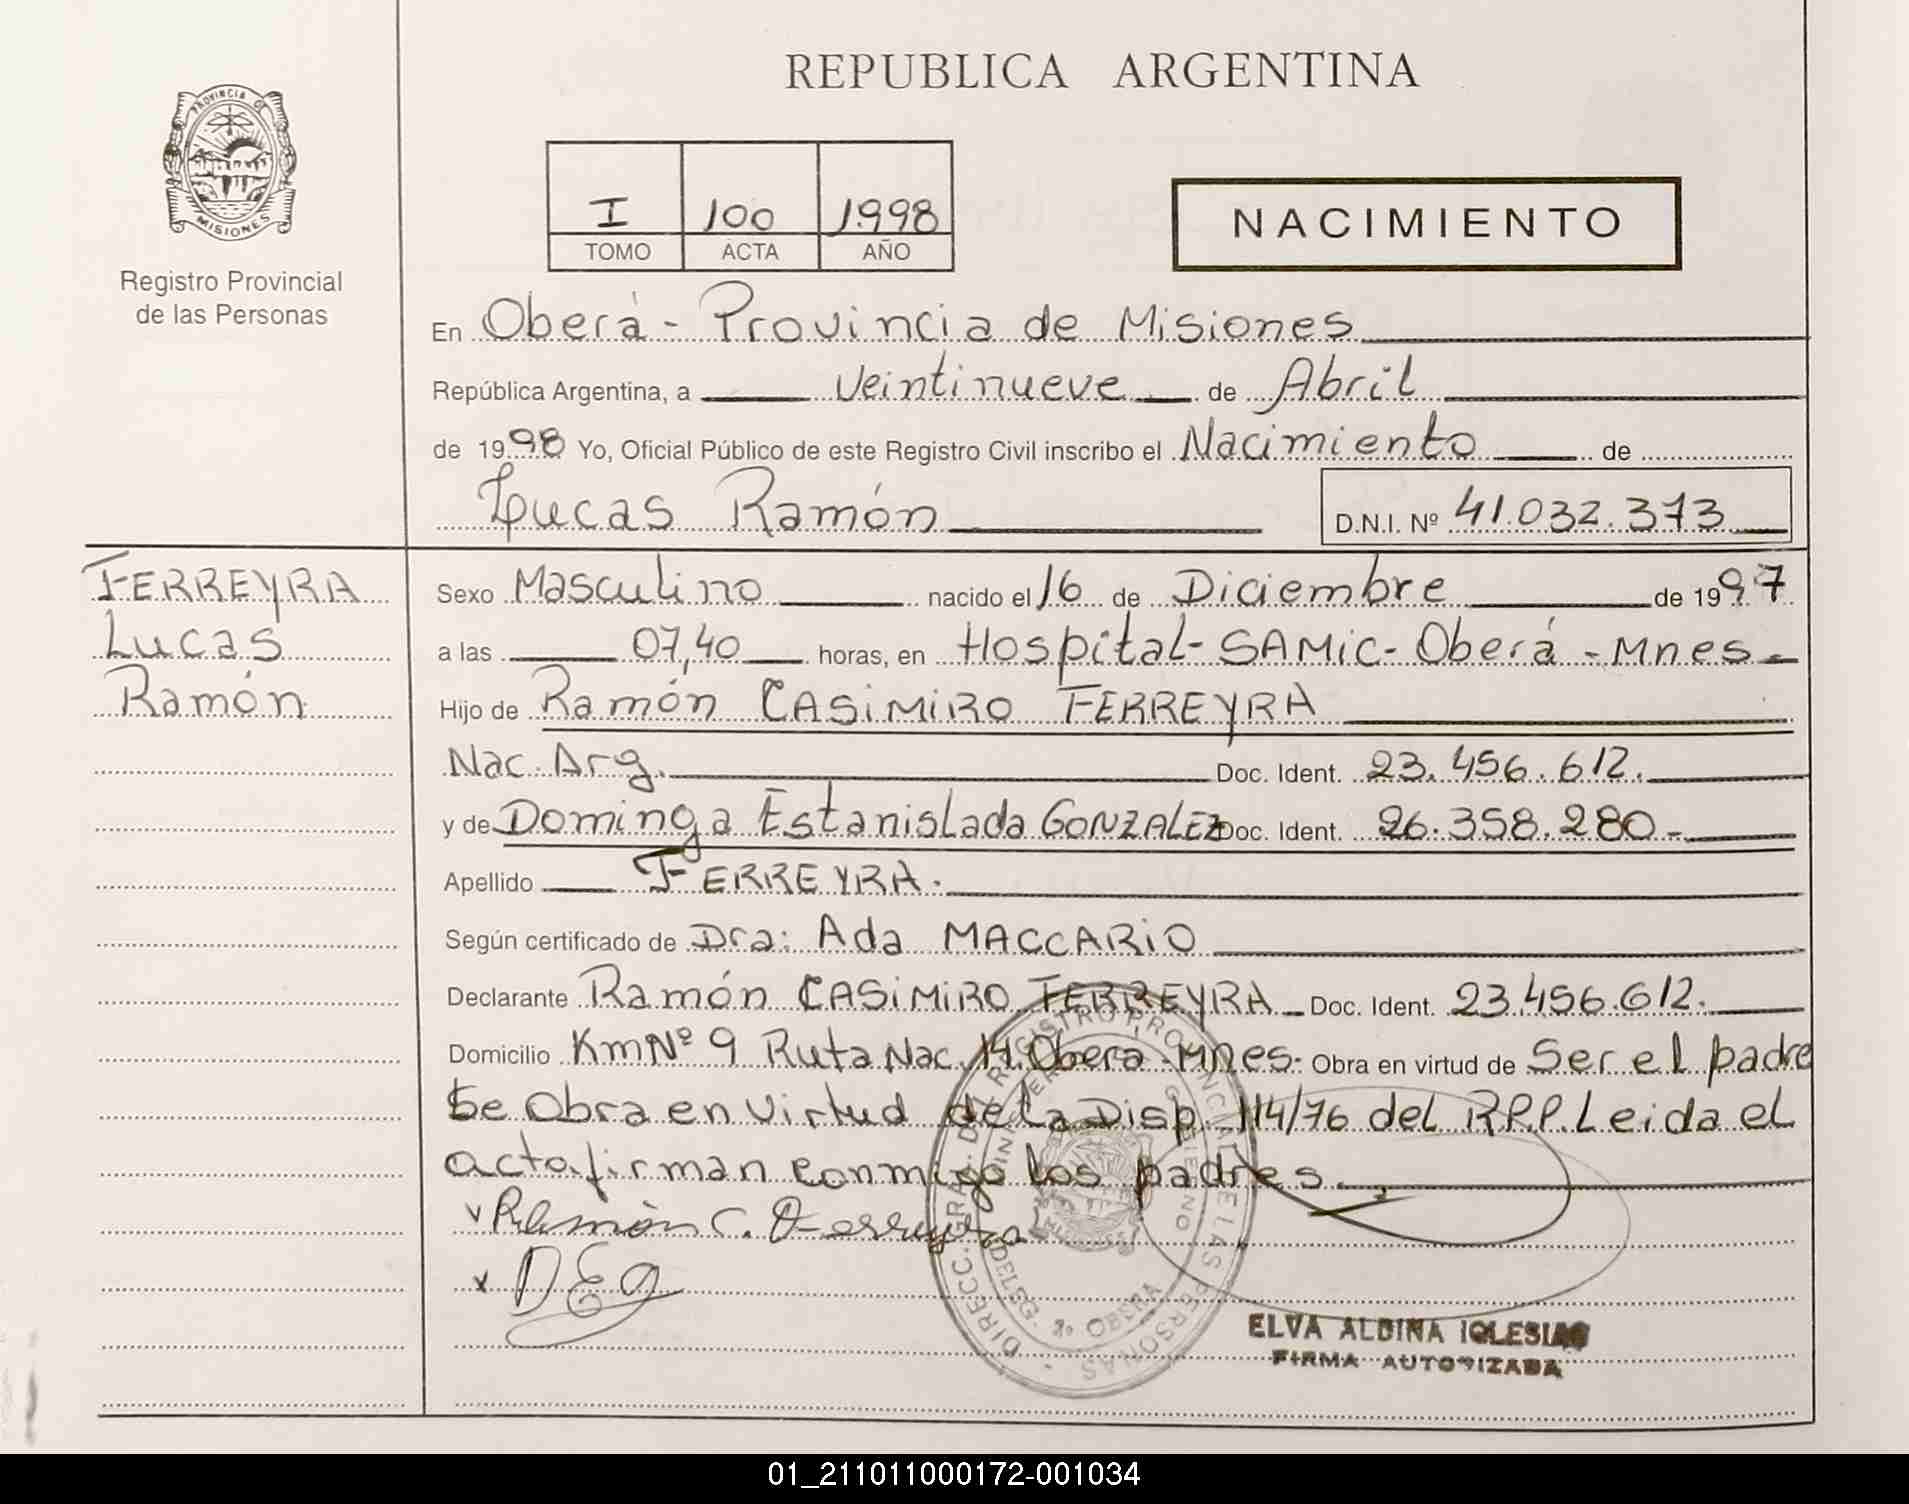 PROVINCIA DE
MISIONES
Registro Provincial
de las Personas
REPUBLICA ARGENTINA
I 100 1.998
TOMO ACTA AÑO
NACIMIENTO
En Oberá - Provincia de Misiones
República Argentina, a Veintinueve de Abril
de 1998 Yo, Oficial Público de este Registro Civil inscribo el Nacimiento de
Lucas Ramón D.N.I. Nº 41.032.373
FERREYRA
Lucas
Ramón
Sexo Masculino nacido el 16 de Diciembre de 1997
a las 07,40 horas, en Hospital-SAMIC-Oberá-Mnes-
Hijo de Ramón CASIMIRO FERREYRA
Nac. Arg. Doc. Ident. 23.456.612.
y de Dominga Estanislada GONZALEZ Doc. Ident. 26.358.280-
Apellido FERREYRA.
Según certificado de Dra: Ada MACCARIO
Declarante Ramón CASIMIRO FERREYRA Doc. Ident. 23.456.612.
Domicilio Km Nº 9 Ruta Nac. 14. Oberá-Mnes. Obra en virtud de Ser el padre
Se Obra en virtud de la Disp. 114/76 del R.P.P. Leida el
acta firman conmigo los padres.
Ramón C. Ferreyra
DEG
DIRECC. GRAL. DEL REGISTRO PROVINCIAL DE LAS PERSONAS
DELEG. 2º OBERA
ELVA ALBINA IGLESIAS
FIRMA AUTORIZADA
01_211011000172-001034